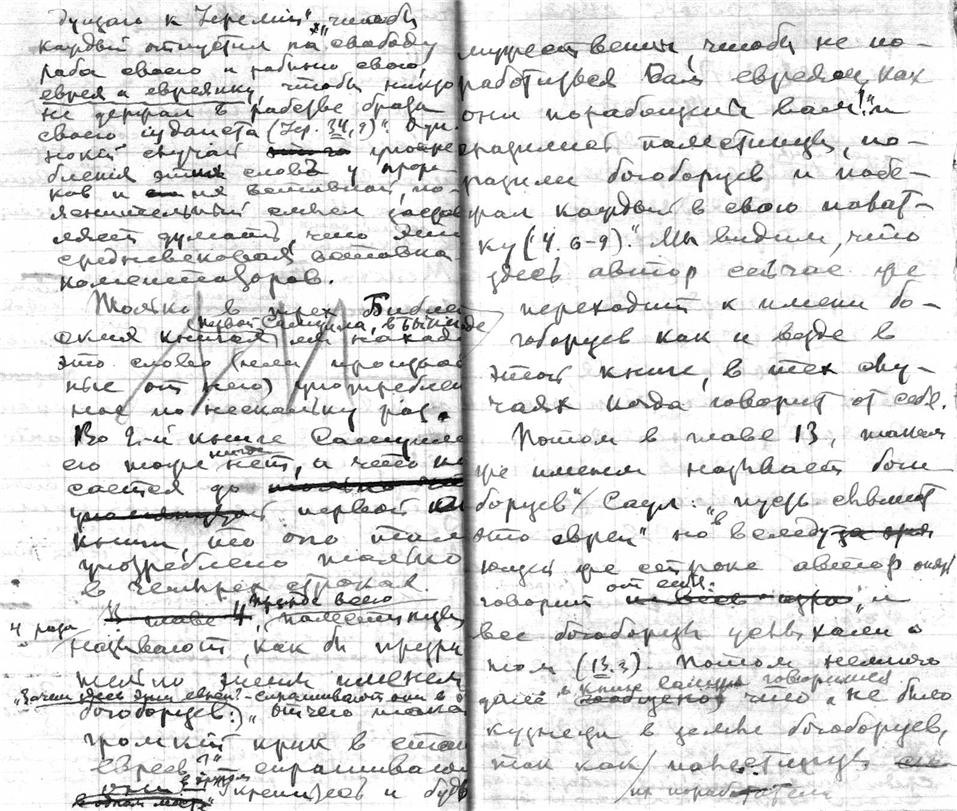 к Иеремии", чтобы
каждый отпустил на свободу
раба своего и рабыню свою,
еврея и евреянку, чтобы никто
не держал в рабстве брата
своего иудаиста (Иер. 34, 9)".
случай
бления этих слов у проро-
ков и не
яснительный смысл застав
ляет думать, что это
средневековая вставка
комментаторов.
Только в трех Библей
ских книгах
это слово (или производ
ные от него) употреблен
ное по нескольку раз.
Во 2-й книге Самуила
его тоже нигде нет, а что ка
сается до
первой
книги, то оно там
употреблено только
в четырех строках.
4 раза
В главе 4, прежде всего палестинцы
называют, как бы презри
тельно этим именем
"Зачем здесь эти евреи? - спрашивают они в
богоборцев: "отчего такой
громкий крик в стане
евреев?" спрашивают
они в другом
крепитесь и будь
мужественны, чтобы не по-
работиться Вам евреям, как
они порабощены вам!" и
сразились палестинцы, по-
разили богоборцев и побе-
жал каждый в свою палат-
ку (4. 6-9)." Мы видим, что
здесь автор сейчас же
переходит к имени бо-
гоборцев как и везде в
этой книге, в тех слу-
чаях когда говорит от себя.
Потом в главе 13, таким
же именем называет бого
борцев Саул: "пусть слышат
это евреи" но в следу
ющей же строке автор опять
говорит от себя: "и
все богоборцы услыхали о
том (13.3). Потом немного
далее в книге Самуила говорится что "не было
кузнеца в земле богоборцев,
так как палестинцы